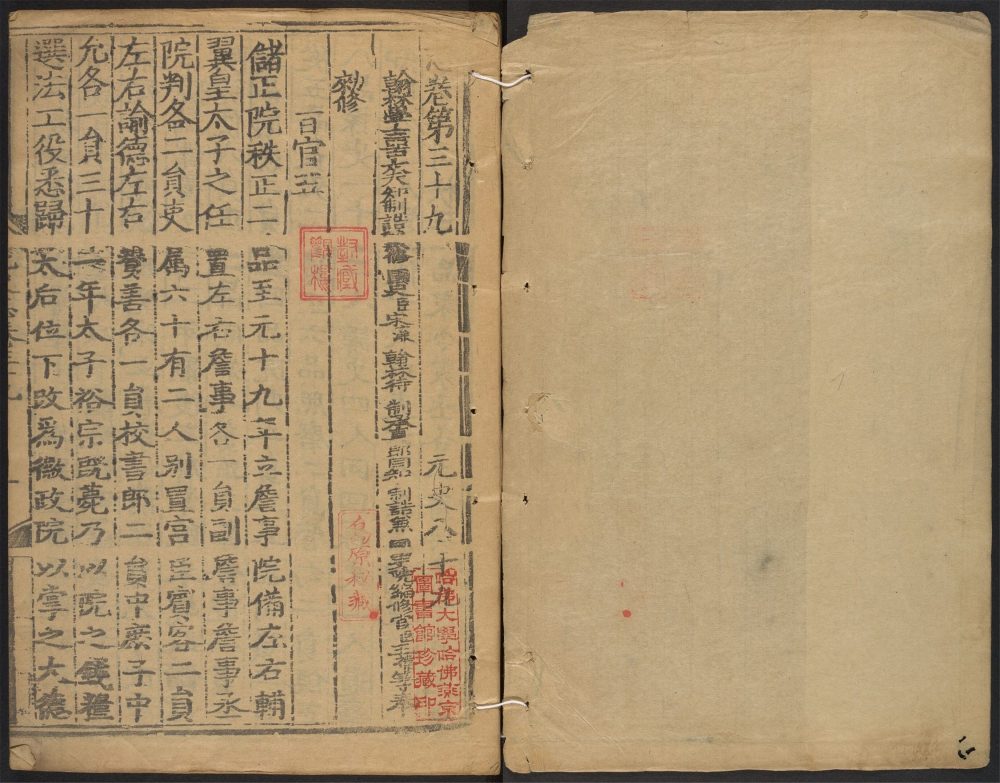 卷第三十九 元史八十
翰林學士亞中大夫知制誥兼修國史臣宋濂翰林待制承直郎同知制誥兼國史院編修官臣王禕等奉
敕修
百官五
儲正院秩正二品至元十九年立詹事院備左右輔
翼皇太子之任置左右詹事各一貟副詹事詹事丞
院判各二貟吏属六十有二人別置宮臣賓客二貟
左右諭德左右贊善各一貟校書郎二貟中庶子中
允各一貟三十一年太子裕宗既薨乃以院之錢糧
選法工役悉歸太后位下改爲徽政院以掌之大德
哈佛大學哈佛燕京圖書館珍藏印